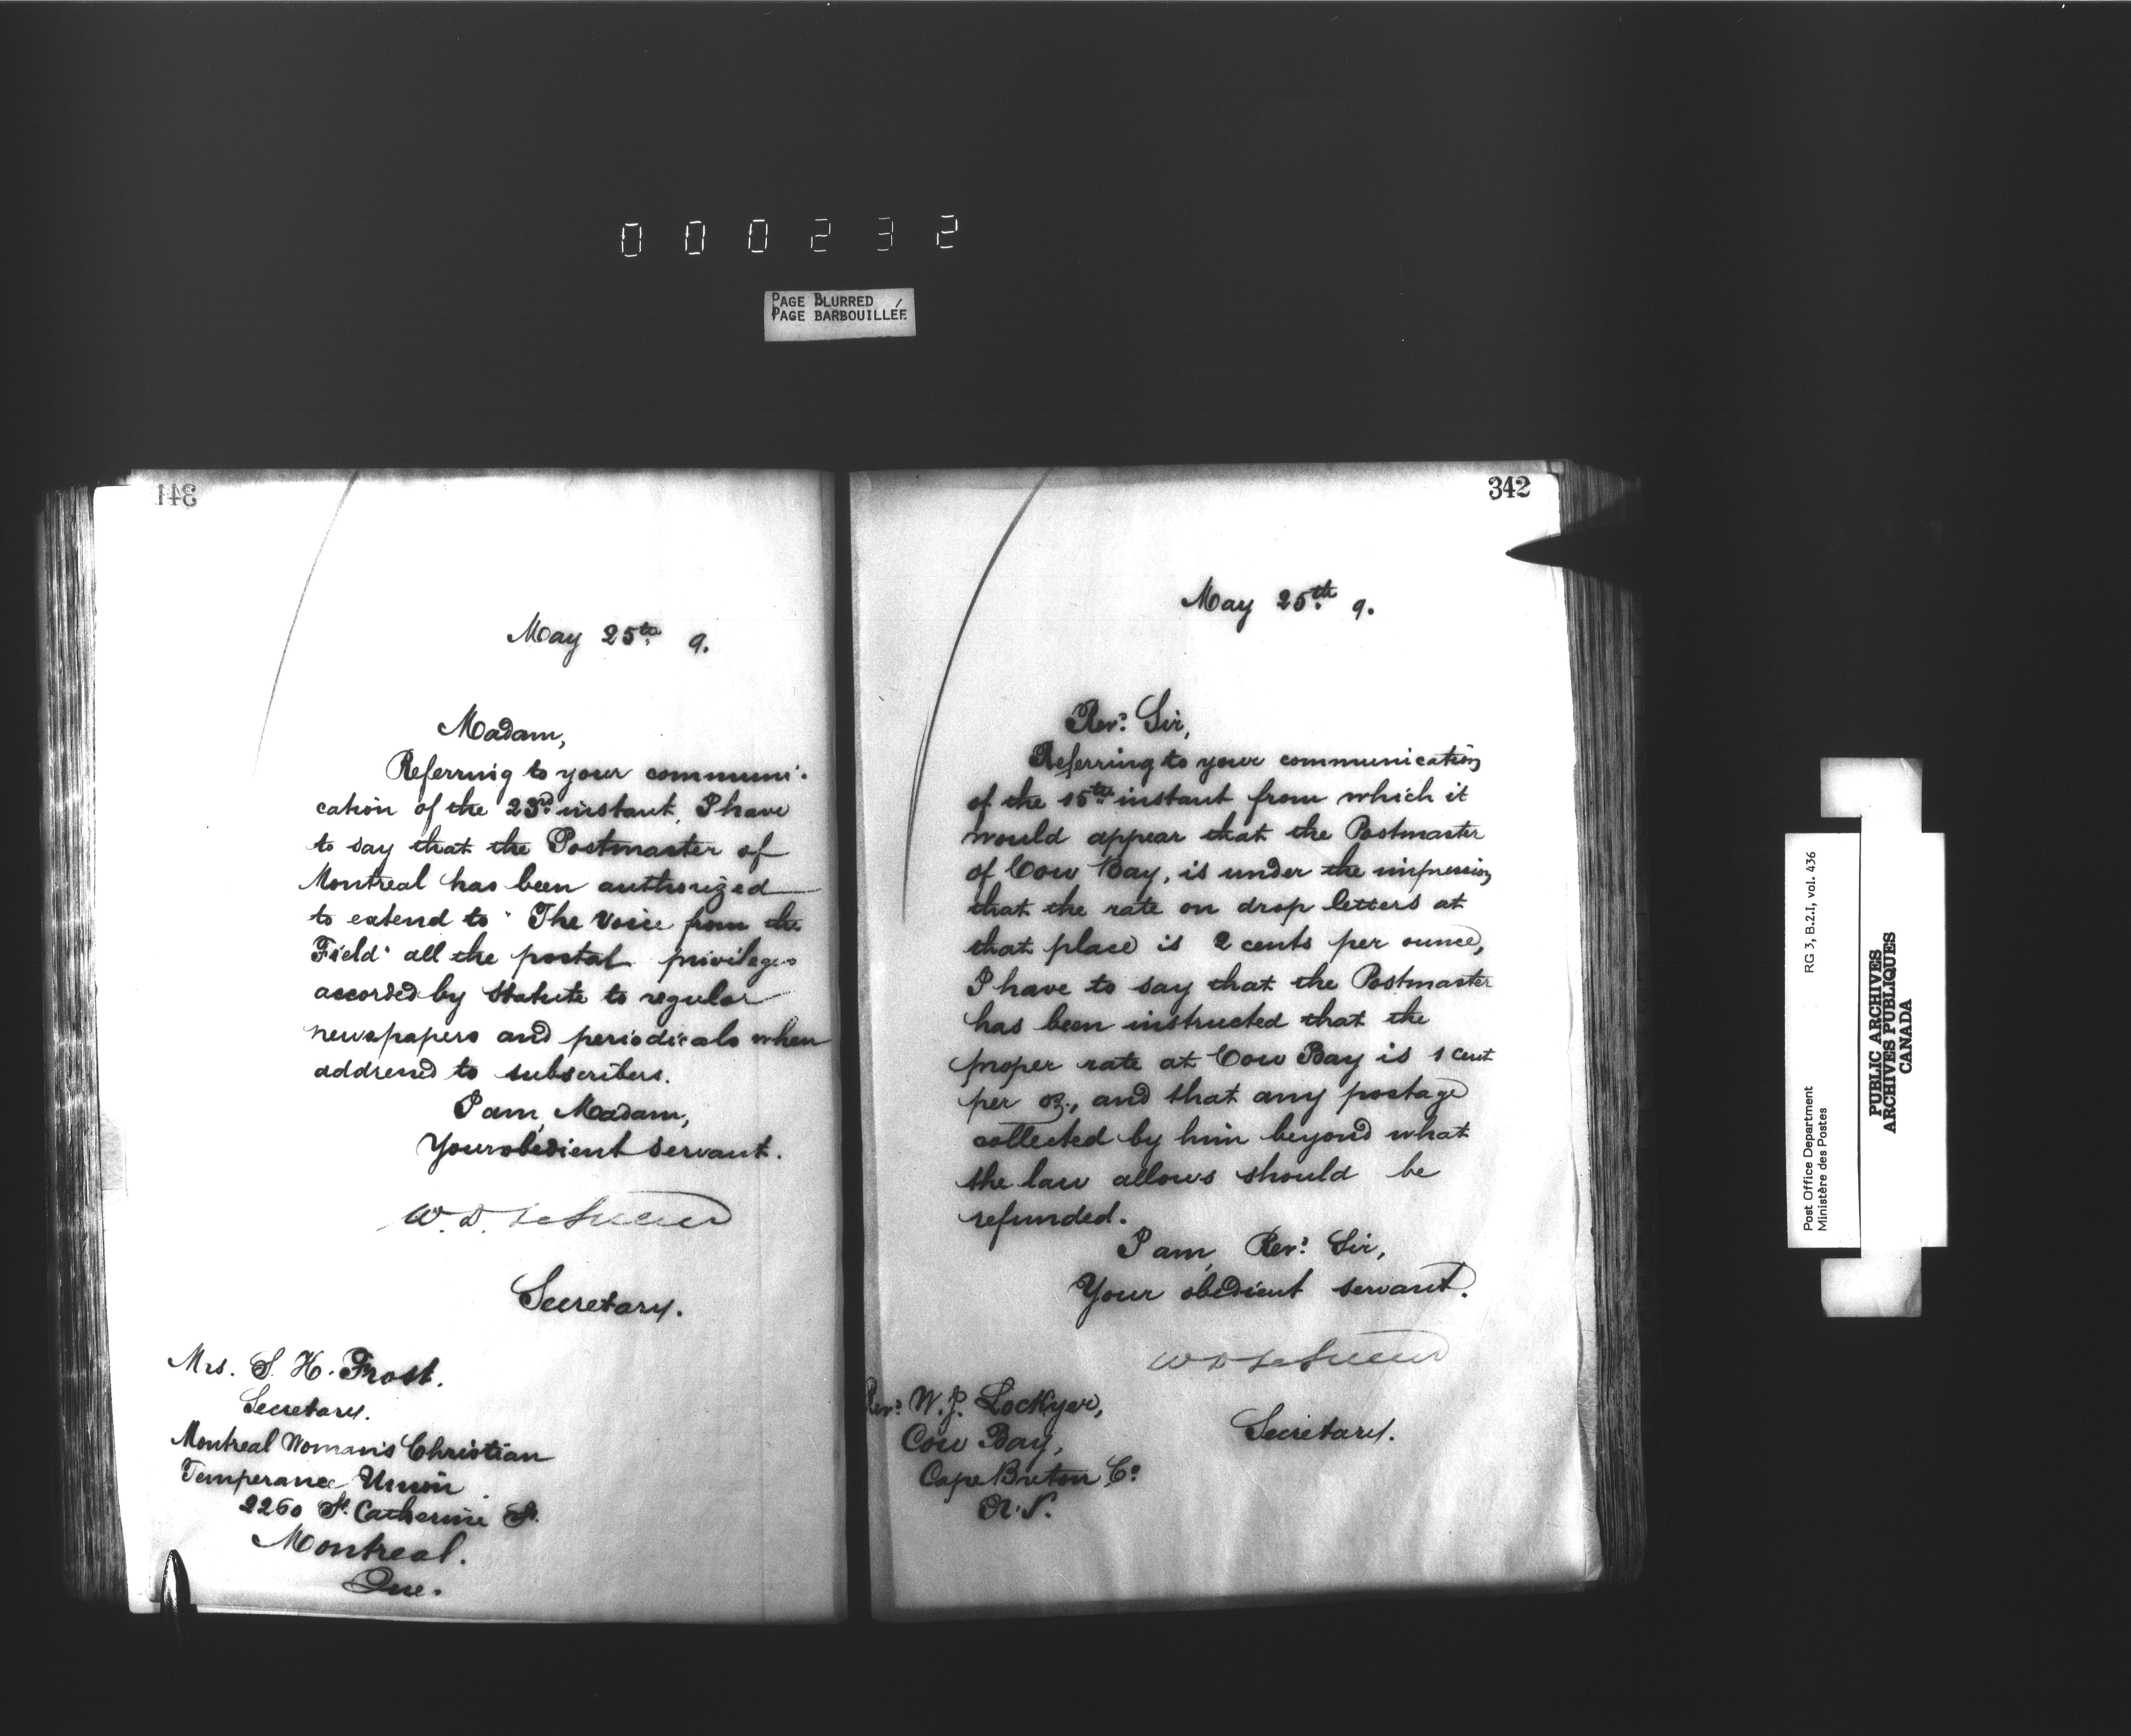 000232
PAGE BLURRED
PAGE BARBOUILLÉE
341
May 25th 9.
Madam,
Referring to your communi-
cation of the 23rd instant, I have
to say that the Postmaster of
Montreal has been authorized
to extend to "The Voice from the
Field" all the postal privileges
accorded by Statute to regular
newspapers and periodicals when
addressed to subscribers.
I am, Madam,
Your obedient servant.
W. D. LeSueur
Secretary.
Mrs. S. H. Frost.
Secretary.
Montreal Woman's Christian
Temperance Union
2260 St. Catherine St.
Montreal.
Que.
342
May 25th 9.
Revd. Sir,
Referring to your communication
of the 15th instant from which it
would appear that the Postmaster
of Cow Bay, is under the impression
that the rate on drop letters at
that place is 2 cents per ounce,
I have to say that the Postmaster
has been instructed that the
proper rate at Cow Bay is 1 cent
per oz., and that any postage
collected by him beyond what
the law allows should be
refunded.
I am, Revd. Sir,
Your obedient servant.
W D LeSueur
Secretary.
Revd. W. J. Lockyer,
Cow Bay,
Cape Breton Co.
N.S.
Post Office Department
Ministère des Postes
RG 3, B.2.I, vol. 436
PUBLIC ARCHIVES
ARCHIVES PUBLIQUES
CANADA